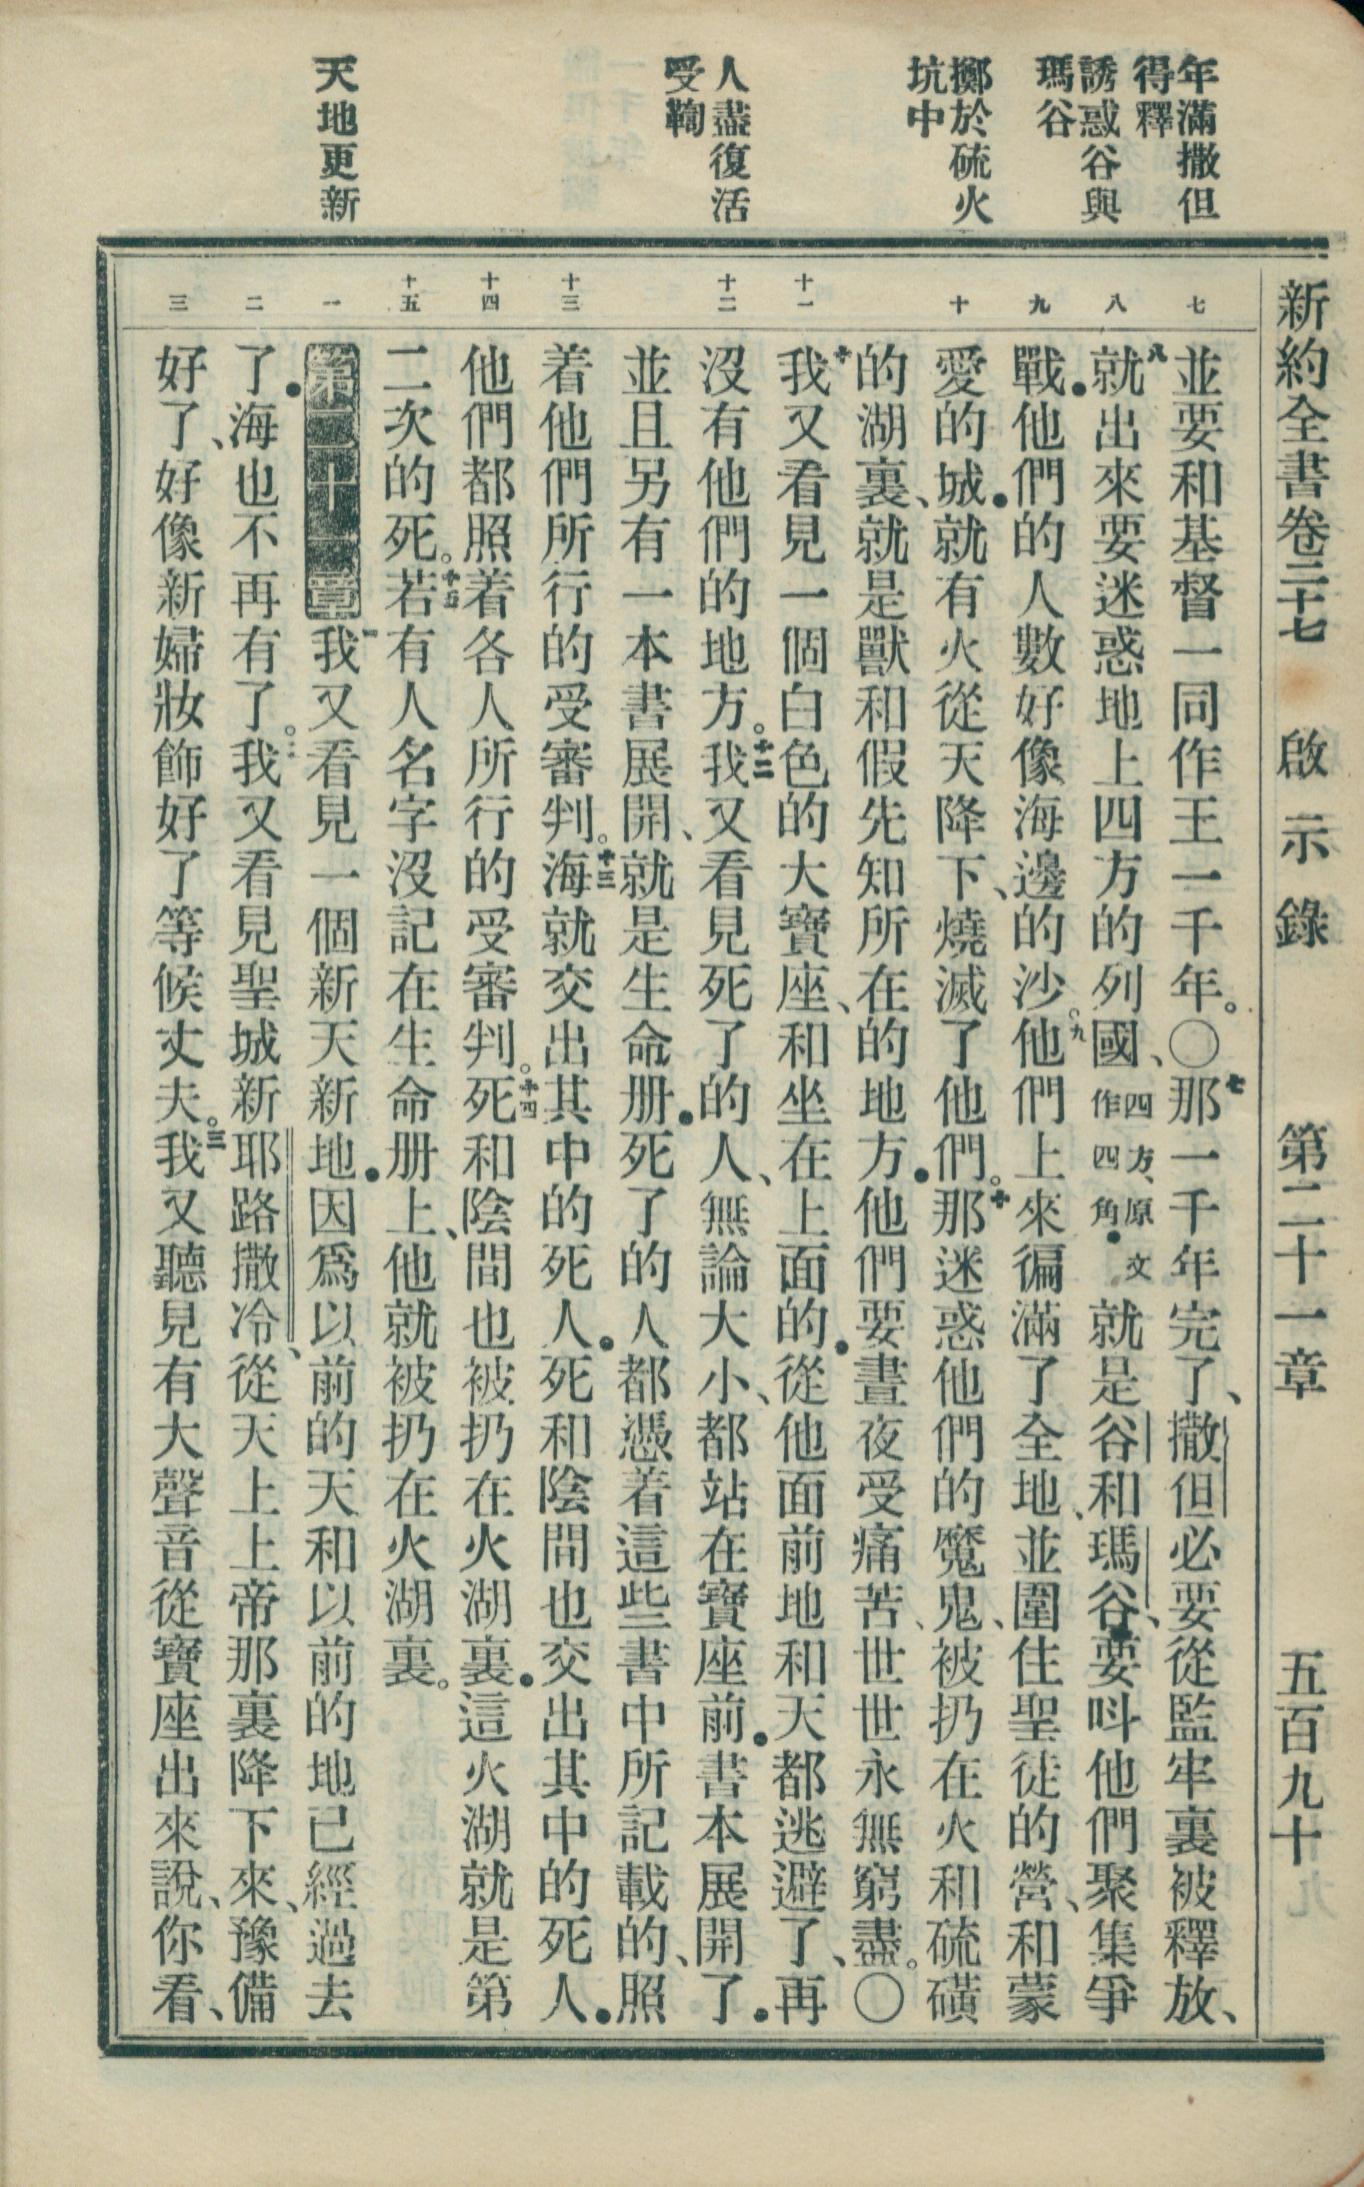 新約全書卷二十七　啟示錄　第二十一章　五百九十
年滿撒但
得釋
誘惑谷與
瑪谷
擲於硫火
坑中
人盡復活
受鞫
天地更新
七
並要和基督一同作王一千年。〇七那一千年完了、撒但必要從監牢裏被釋放、
八
八就出來要迷惑地上四方的列國、四方、原文作四角●就是谷和瑪谷、要呌他們聚集爭
九
戰●他們的人數好像海邊的沙。九他們上來徧滿了全地、並圍住聖徒的營、和蒙
十
愛的城●就有火從天降下、燒滅了他們。十那迷惑他們的魔鬼、被扔在火和硫磺
的湖裏、就是獸和假先知所在的地方●他們要晝夜受痛苦、世世永無窮盡。〇
十一
十一我又看見一個白色的大寶座、和坐在上面的●從他面前地和天都逃避了、再
十二
沒有他們的地方。十二我又看見死了的人、無論大小、都站在寶座前●書本展開了●
並且另有一本書展開、就是生命册●死了的人都憑着這些書中所記載的、照
十三
着他們所行的受審判。十三海就交出其中的死人●死和陰間也交出其中的死人●
十四
他們都照着各人所行的受審判。十四死和陰間也被扔在火湖裏●這火湖就是第
十五
二次的死。十五若有人名字沒記在生命册上、他就被扔在火湖裏。
一
第二十一章一我又看見一個新天新地●因爲以前的天和以前的地已經過去
二
了●海也不再有了。二我又看見聖城新耶路撒冷、從天上上帝那裏降下來、豫備
三
好了、好像新婦妝飾好了等候丈夫。三我又聽見有大聲音從寶座出來說、你看、